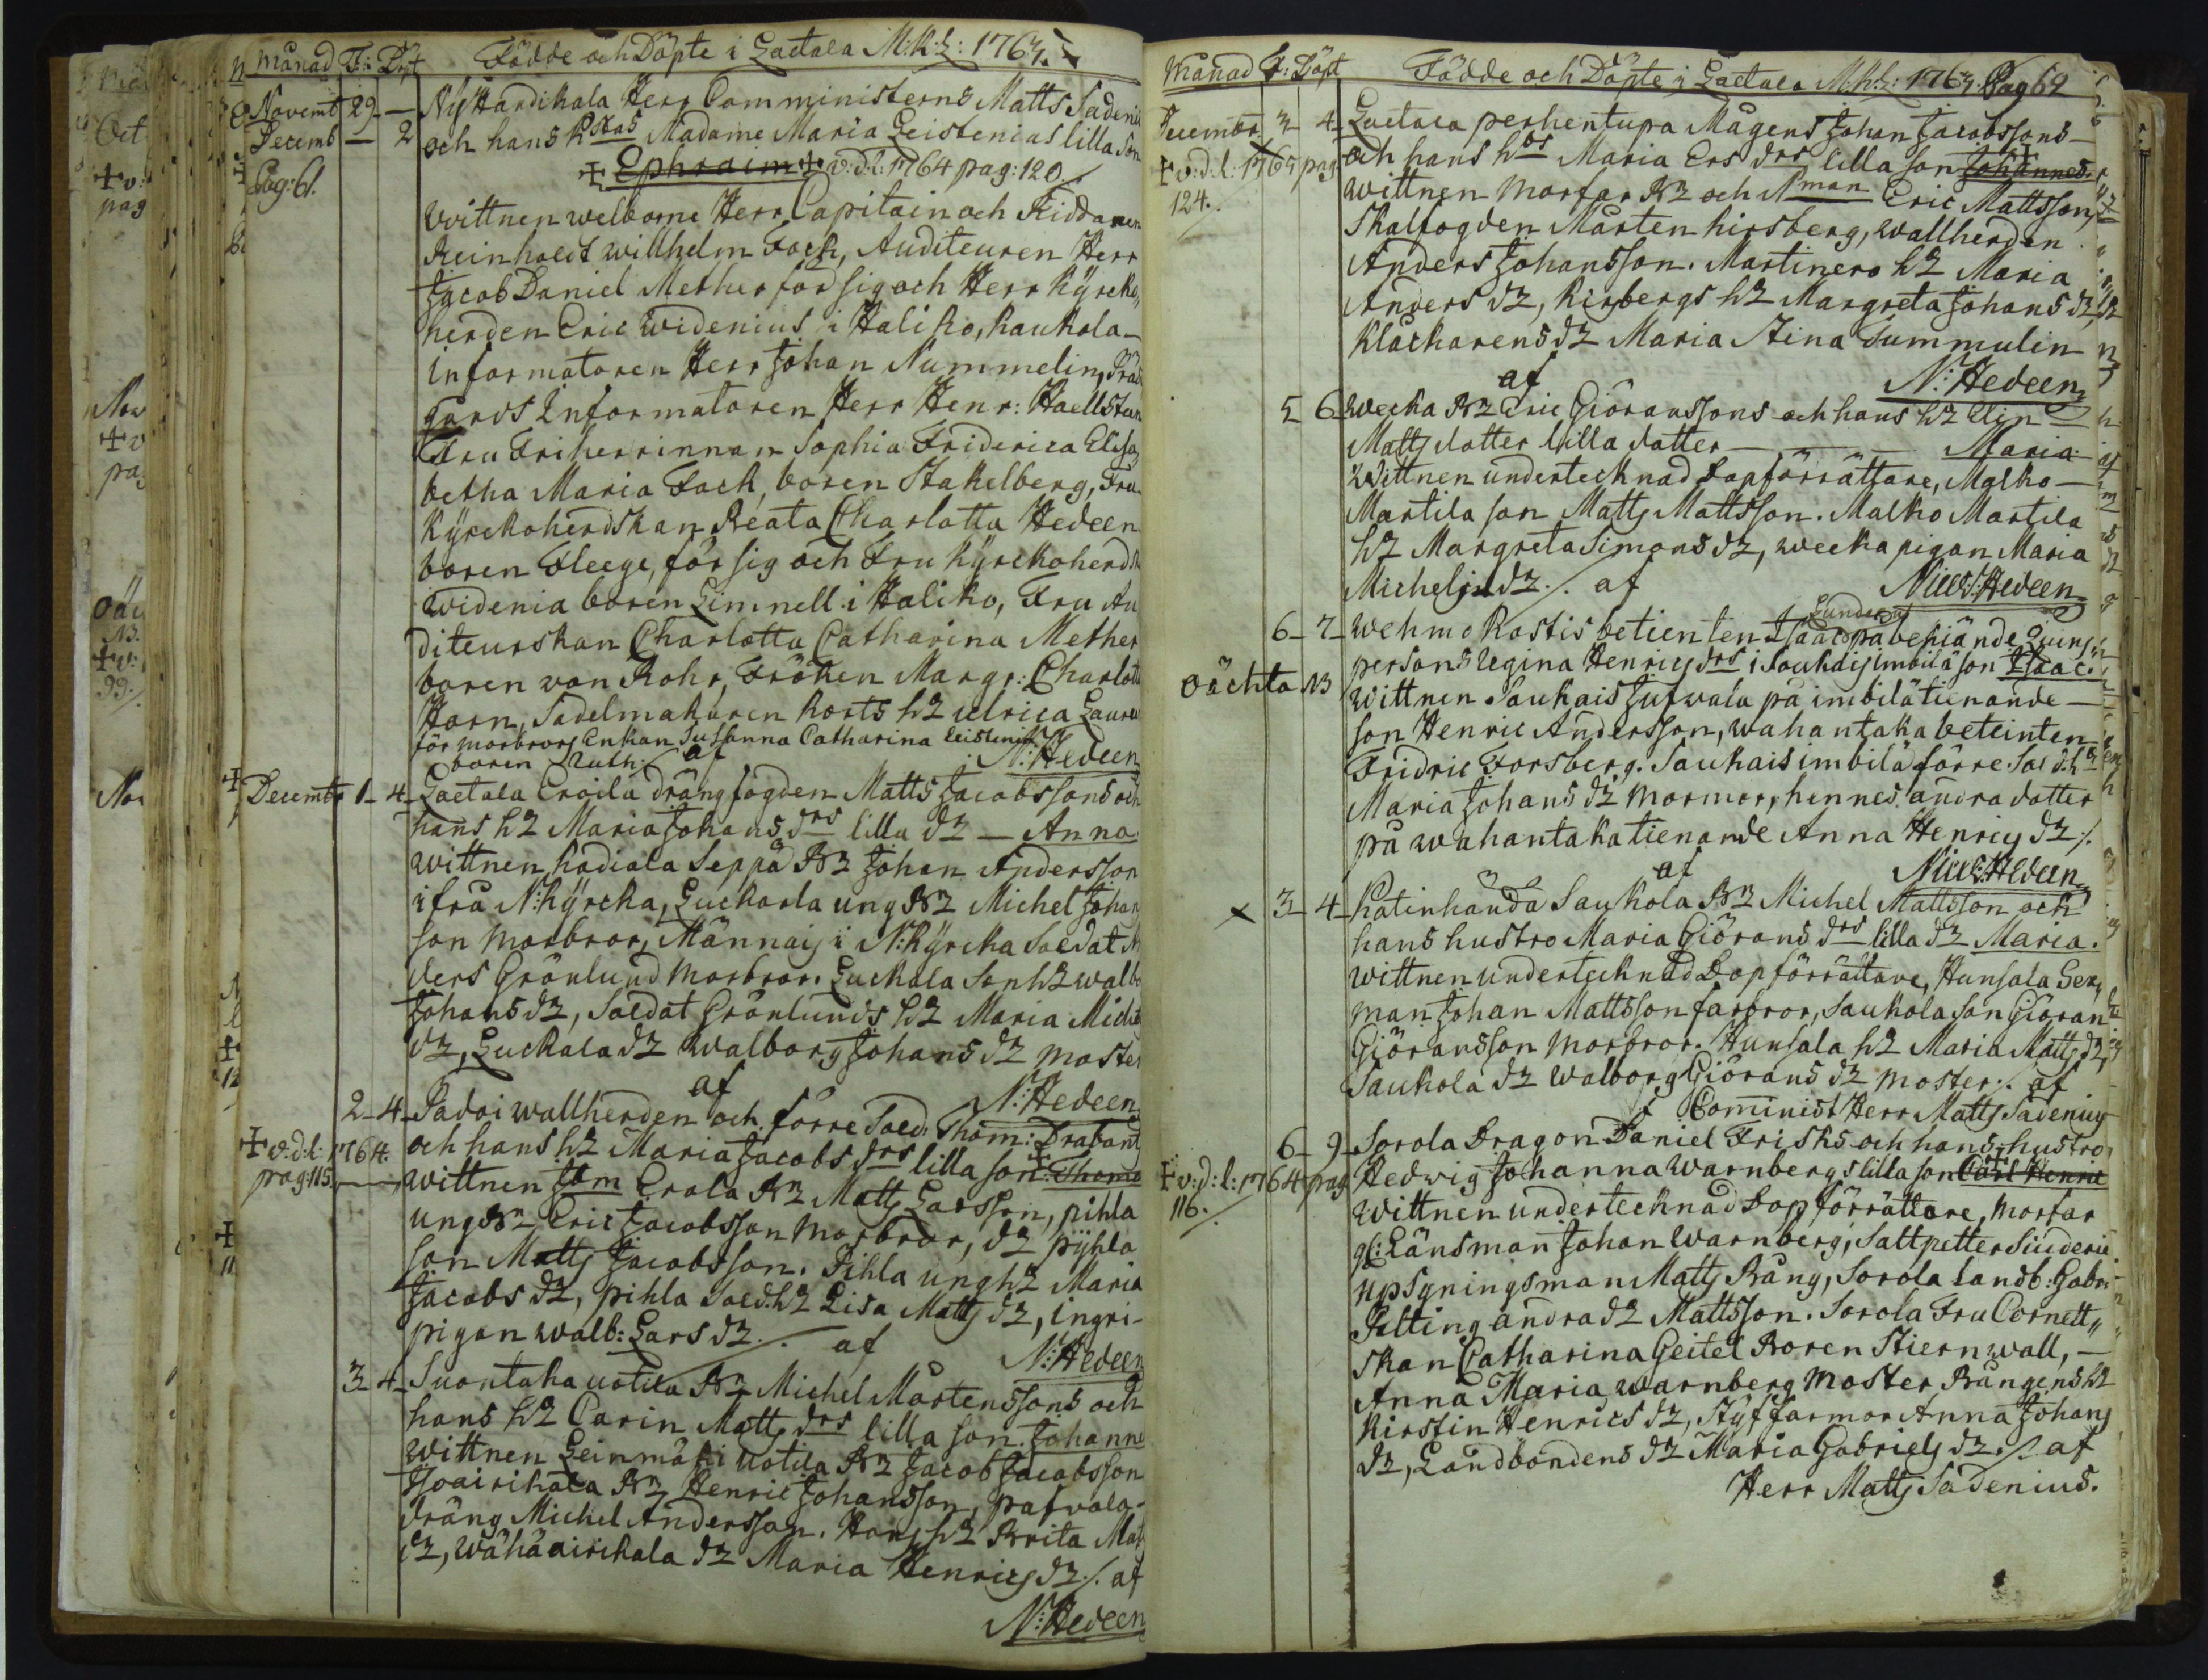 Månad F: Döpt Födde och Döpte i Laetala M:k:L: 1763.
Novemb 29 — Ny Hardikala Herr Comministerns Matts Sadenii
Decemb — 2 och hans K stas Madame Maria Leistenias lilla Son
Pag: 61. Ephraim v:d:l: 1764 pag: 120
Wittnen welborne Herr Capitain och Riddaren
Reinholdt willhelm Fock, Auditeuren Herr
Jacob Daniel Mether för sig och Herr Kyrcko
herden Eric Widenius i Haliko, Kaukola
informatoren Herr Johan Nummelin, Präst
gårds Informatoren Herr Henr: Haellsten
Fru Friherrinnan Sophia Friderica Elisa
betha Maria Fock, boren Stakelberg, Fru
Kyrckoherdskan Beata Charlotta Hedeen
boren Fleege, för sig och Fru Kyrckoherdsk
Widenia boren Limnell i Haliko, Fru Au
diteurskan Charlotta Catharina Mether
boren von Rohr, Fröken Margr: Charlott
Horn, Sadelmakaren Korts h2 Ulrica Laure
för morbrors Enkan Susanna Catharina Leistenia
boren Ruth. af N: Hedeen
Decembr 1 - 4 - Laetala Eroila drängfogden Matts Jacobssons och
hans h2 Maria Johans drs lilla d2 — Anna
wittnen, Kadiala Seppä B2 Johan Andersson
ifrå N: Kyrcka, Luckarla ung B2 Michel Johan
son Morbror, Männais i N: Kyrcka Soldat An
ders Grönlund Morbror. Luckala Son h2 walb
Johans d2, Soldat Grönlunds h2 Maria Michels
d2, Luckala d2 Walborg Johans d2 moster
af N: Hedeen
2 - 4 - Sadoi wallherden och förre Sold: Thom: Drabant
v:d:l: 1764. och hans h2 Maria Jacobs drs lilla son: Thoma
pag: 115. wittnen Jam Erola B2 Matts Larsson, pihla
ung Bn Eric Jacobsson Morbror, d2 pyhla
son Matts Jacobsson. Pihla ung h2 Maria
Jacobs d2, pihla Sold: h2 Lisa Matts d2, ingri-
pigan walb: Lars d2 ./. af N: Hedeen
3 - 4 - Suontaka uotila B2 Michel Mårtenssons och
hans h2 Carin Matts drs lilla son. Johanne
Wittnen Leinmäki uotila B2 Jacob Jacobsson
Isoairikala B2 Henric Johansson, pafvala-
dräng Michel Andersson. Hans h2 Brita Mat
d2, Wähäairikala d2 Maria Henrics d2 ./. af
N: Hedeen
Månad F: Döpt Födde och Döpte i Laetala M:k:L: 1763. Pag 62
December 3 4 - Laetala perhentupa Mågens Johan Jacobssons
v:d:l: 1765 pag: och hans hos Maria Ers drs lilla son Johannes.
124. wittnen Morfar B2 och N man Eric Mattsson,
Skalfogden Mårten Kirsberg, wallherden
Anders Johansson. Martinero h2 Maria
Anders d2, Kirsbergs h2 Margreta Johans d2,
Klåckarens d2 Maria Stina Tummulin
af N: Hedeen
5 6 wecka B2 Eric Göranssons och hans h2 Elin
Matts dotter lilla dotter — Maria
Wittnen undertecknad Dopförrättare, Malko
Martila son Matts Mattsson. Malko Martila
h2 Margreta Simons d2, wecka pigan Maria
Michels d2 ./. af Nicls: Hedeen
6 - 7 - Wehmo Rostis betienten Isaac på
person Regina Henrics drs i Soukais imbilä son Isaac.
oächta N3 wittnen Saukais Jufwala på imbilä tienande
son Henric Andersson, wahantaka beteinten
Fridric Forsberg. Saukais imbilä förre Sol d: h2
Maria Johans d2 mormor, hennes andra dotter
på wahantaka tienande Anna Henrics d2 ./.
af Nicls: Hedeen
× 3 - 4 - Katinhända Saukola B2 Michel Mattsson och
hans hustro Maria Görans drs lilla d2 Maria.
wittnen undertecknad Dopförrättare, Hunsala Sex,,
man Johan Mattsson farbror, Saukola Son Göran
Göransson Morbror. Hunsala h2 Maria Matts d2,
Saukola d2 Walborg Görans d2 moster ./. af
Cominist Herr Matts Sadenius
6 - 9 - Sorola Dragon Daniel Frisks och hans hustro
v:d:l: 1764 pag Hedwig Johanna Warnbergs lilla son Carl Henric
116. wittnen undertecknad Dopförrättare, morfar
gl: Länsman Johan Warnberg, Saltpetter Siuderie
upsyningsman Matts Rång, Sorola Landb: Gabri
Pelting andra d2 Mattsson. Sorola Fru Cornett,,
skan Catharina Geitel Boren Stiernwall,
Anna Maria Warnberg Moster Rångens h2
Kirstin Henrics d2, Styffarmor Anna Johans
d2, Landbondens d2 Maria Gabriels d2 ./. af
Herr Matts Sadenius.